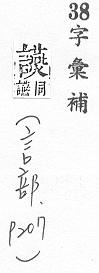 38字彙補
讌
同
(言部. p207)